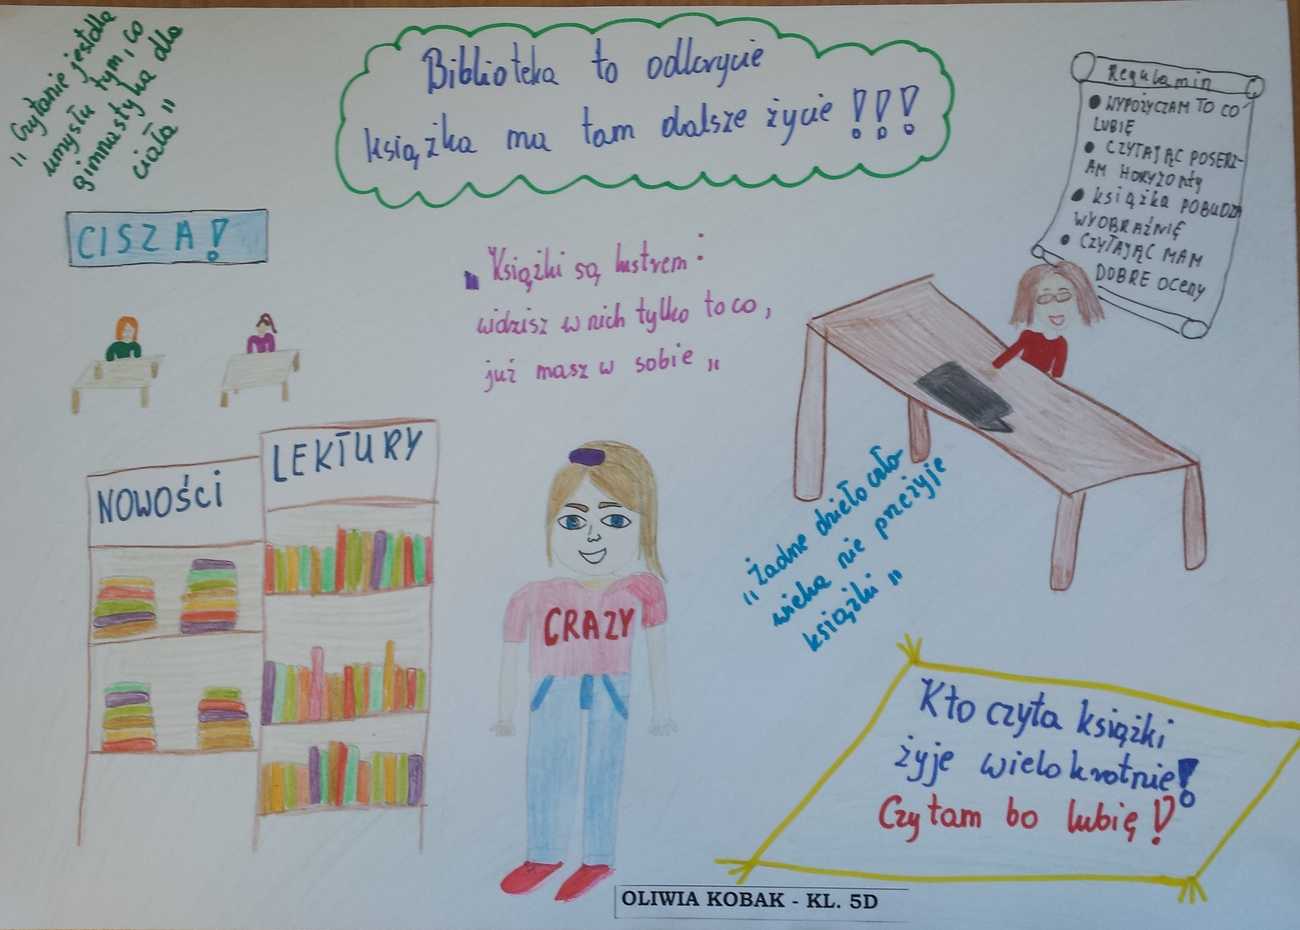 „Czytanie jest dla
umysłu tym, co
gimnastyka dla
ciała"
Biblioteka to odkrycie
książka ma tam dalsze życie!!!
Regulamin
• WYPOŻYCZAM TO CO
LUBIĘ
• CZYTAJĄC POSERZ-
AM HORYZONTY
• KSIĄŻKA POBUDZA
WYOBRAŹNIĘ
• CZYTAJĄC MAM
DOBRE OCENY
CISZA!
„Książki są lustrem:
widzisz w nich tylko to co,
już masz w sobie"
NOWOŚCI
LEKTURY
CRAZY
„Żadne dzieło czło
wieka nie przeżyje
książki"
Kto czyta książki
żyje wielokrotnie!
Czytam bo lubię!
OLIWIA KOBAK - KL. 5D